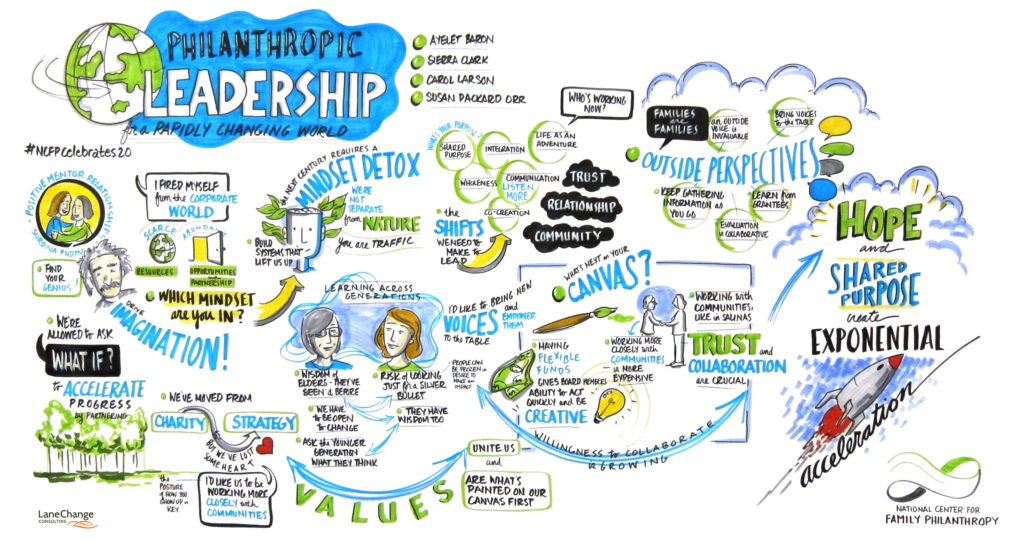 PHILANTHROPIC
LEADERSHIP
for a RAPIDLY CHANGING WORLD
#NCFPCelebrates20
AYELET BARON
SIERRA CLARK
CAROL LARSON
SUSAN PACKARD ORR
POSITIVE MENTOR RELATIONSHIPS
I FIRED MYSELF
from the CORPORATE
WORLD
FIND
YOUR
GENIUS!
SCARCE
RESOURCES
OPPORTUNITIES
PARTNERSHIP
WHICH MINDSET
are YOU IN?
DRIVE
IMAGINATION!
the NEXT CENTURY REQUIRES A
MINDSET DETOX
WE'RE
NOT
SEPARATE
from NATURE
you are TRAFFIC
BUILD
SYSTEMS THAT
LIFT US UP
WHAT'S YOUR PURPOSE?
SHARED
PURPOSE
INTEGRATION
LIFE AS AN
ADVENTURE
WHOLENESS
COMMUNICATION
LISTEN
MORE
CO-CREATION
WHO'S WORKING
NOW?
TRUST
RELATIONSHIP
COMMUNITY
the
SHIFTS
WE NEED to
MAKE to
LEAD
FAMILIES
are
FAMILIES
AN OUTSIDE
VOICE is
INVALUABLE
BRING VOICES
to the TABLE
OUTSIDE PERSPECTIVES
KEEP GATHERING
INFORMATION as
YOU GO
LEARN from
GRANTEES
EVALUATION
is COLLABORATIVE
HOPE
and
SHARED
PURPOSE
create
EXPONENTIAL
acceleration
WE'RE
ALLOWED to ASK
WHAT IF?
to ACCELERATE
PROGRESS
by PARTNERING
WE'VE MOVED FROM
CHARITY
STRATEGY
BUT, WE'VE LOST
SOME HEART
the
POSTURE
of HOW YOU
SHOW UP is
KEY
I'D LIKE US to be
WORKING MORE
CLOSELY with
COMMUNITIES
LEARNING ACROSS
GENERATIONS
WISDOM of
ELDERS - THEY'VE
BEEN a BEFORE
RISK of LOOKING
JUST for a SILVER
BULLET
WE HAVE
to BE OPEN
to CHANGE
THEY HAVE
WISDOM TOO
ASK the YOUNGER
GENERATION
WHAT THEY THINK
VALUES
UNITE US
and
ARE WHAT'S
PAINTED ON OUR
CANVAS FIRST
I'D LIKE to BRING NEW
VOICES
and
EMPOWER
THEM
to the TABLE
PEOPLE CAN
BE FROZEN in
DESIRE to
MAKE an
IMPACT
WHAT'S NEXT on YOUR
CANVAS?
HAVING
FLEXIBLE
FUNDS
GIVES BOARD MEMBERS
ABILITY to ACT
QUICKLY and BE
CREATIVE
WORKING MORE
CLOSELY with
COMMUNITIES
is MORE
EXPENSIVE
WORKING with
COMMUNITIES,
LIKE in SALINAS
TRUST and
COLLABORATION
are CRUCIAL
WILLINGNESS to COLLABORATE
is GROWING
LaneChange
CONSULTING
NATIONAL CENTER FOR
FAMILY PHILANTHROPY